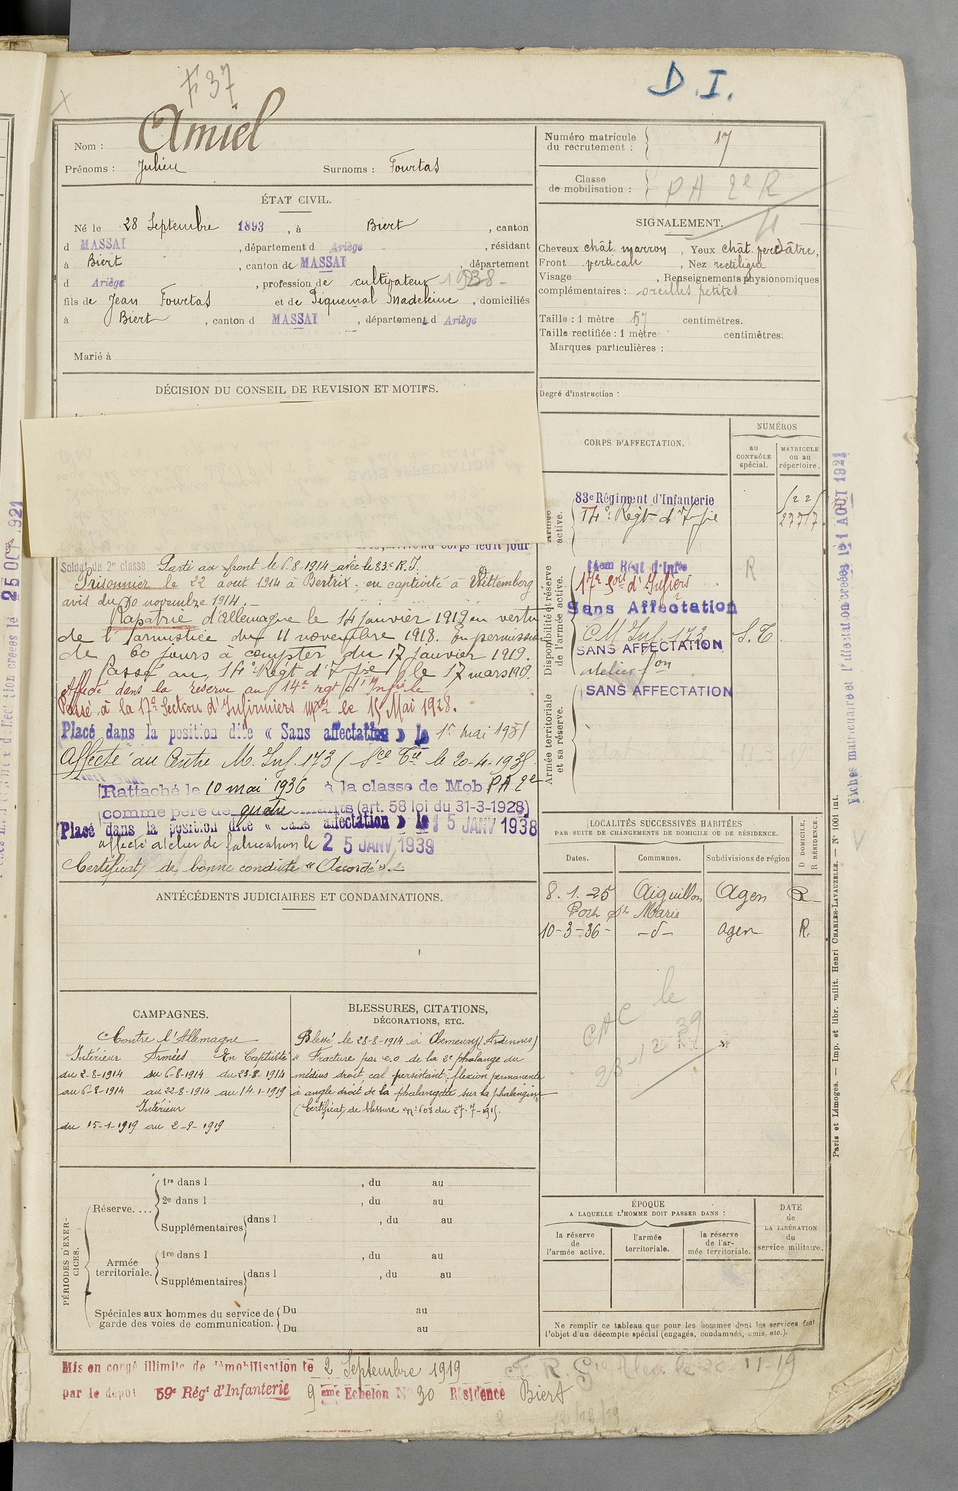 F 37
D. I.
Nom : Amiel
Prénoms : Julien Surnoms : Fourtas
ÉTAT CIVIL.
Né le 28 Septembre 1893, à Biert, canton
d MASSAT, département d Ariège, résidant
à Biert, canton de MASSAT, département
d Ariège, profession de cultivateur
fils de Jean Fourtas et de Piquemal Madeleine, domiciliés
à Biert, canton d MASSAT, département d Ariège
Marié à
DÉCISION DU CONSEIL DE REVISION ET MOTIFS.
Soldat de 2e classe Parti au front le 6.8.1914 avec le 83e R.I.
Prisonnier le 22 aout 1914 à Bertrix. en captivité à Wittemberg
avis du 30 novembre 1914.
Rapatrié d'Allemagne le 14 janvier 1919 en vertu
de l'armistice du 11 novembre 1918. En permission
de 60 jours à compter du 17 janvier 1919.
Passé au 14e Régt d'Infie le 17 mars 1919.
Affecté dans la réserve au 14e rgt d'Infie
Passé à la 17e Section d'Infirmiers mres le 15 Mai 1928.
Placé dans la position dite « Sans affectation » le 1er mai 1931
Affecté au Centre M. Inf. 173 le 20-4-1935
Rattaché le 10 mai 1936 à la classe de Mob PA 2e
comme père de quatre enfants (art. 58 loi du 31-3-1928)
Placé dans la position dite « Sans affectation » le 15 JANV 1938
affecté atelier de fabrication le 25 JANV 1939
Certificat de bonne conduite « Accordé ».
ANTÉCÉDENTS JUDICIAIRES ET CONDAMNATIONS.
CAMPAGNES.
Contre l'Allemagne
Intérieur Armées En Captivité
du 2-8-1914 du 6-8-1914 du 23-8-1914
au 5-8-1914 au 22-8-1914 au 14-1-1919
Intérieur
du 15-1-1919 au 2-9-1919
BLESSURES, CITATIONS,
DÉCORATIONS, ETC.
Blessé le 28-8-1914 à (Ardennes)
« Fracture par e.o de la 2e phalange du
médius droit cal persistant, flexion permanente
à angle droit de la phalangette sur la phalangine
(Certificat de blessure no 608 du 27-7-1915
PÉRIODES D'EXERCICES.
Réserve....
1re dans l , du au
2e dans l , du au
Supplémentaires dans l , du au
Armée territoriale.
1re dans l , du au
Supplémentaires dans l , du au
Spéciales aux hommes du service de garde des voies de communication.
Du au
Du au
Mis en congé illimité de démobilisation le 2 Septembre 1919
par le dépôt 59e Régt d'Infanterie 9 ème Echelon No 30 Résidence Biert
Numéro matricule
du recrutement : 17
Classe
de mobilisation : PA 2e R
SIGNALEMENT.
Cheveux chât. marron, Yeux chât.
Front vertical, Nez rectiligne
Visage , Renseignements physionomiques
complémentaires : oreilles petites
Taille : 1 mètre 57 centimètres.
Taille rectifiée : 1 mètre centimètres.
Marques particulières :
Degré d'instruction :
CORPS D'AFFECTATION.
NUMÉROS
au
CONTRÔLE
spécial.
MATRICULE
ou au
répertoire.
Armée active.
83e Régiment d'Infanterie
14e Régt d'Infie
Disponibilité et réserve de l'armée active.
14eme Régt d'Infie
17e Son d'Infirs
Sans Affectation
C M Inf 173
SANS AFFECTATION
SANS AFFECTATION
Armée territoriale et sa réserve.
R
LOCALITÉS SUCCESSIVES HABITÉES
PAR SUITE DE CHANGEMENTS DE DOMICILE OU DE RÉSIDENCE.
Dates. Communes. Subdivisions de région
D DOMICILE.
R RÉSIDENCE.
8. 1. 25 Aiguillon Agen R
Port Ste Marie
10-3-36 -d- agen R.
ÉPOQUE
A LAQUELLE L'HOMME DOIT PASSER DANS :
la réserve
de
l'armée active.
l'armée
territoriale.
la réserve
de l'armée territoriale.
DATE
de
LA LIBÉRATION
du
service militaire.
Ne remplir ce tableau que pour les hommes dont les services font
l'objet d'un décompte spécial (engagés, condamnés, omis, etc.).
Paris et Limoges. — Imp. et libr. milit. Henri CHARLES-LAVAUZELLE. — No 1001 lut.
Fiches matriculaire et d'affectation créées le 1 AOUT 1921